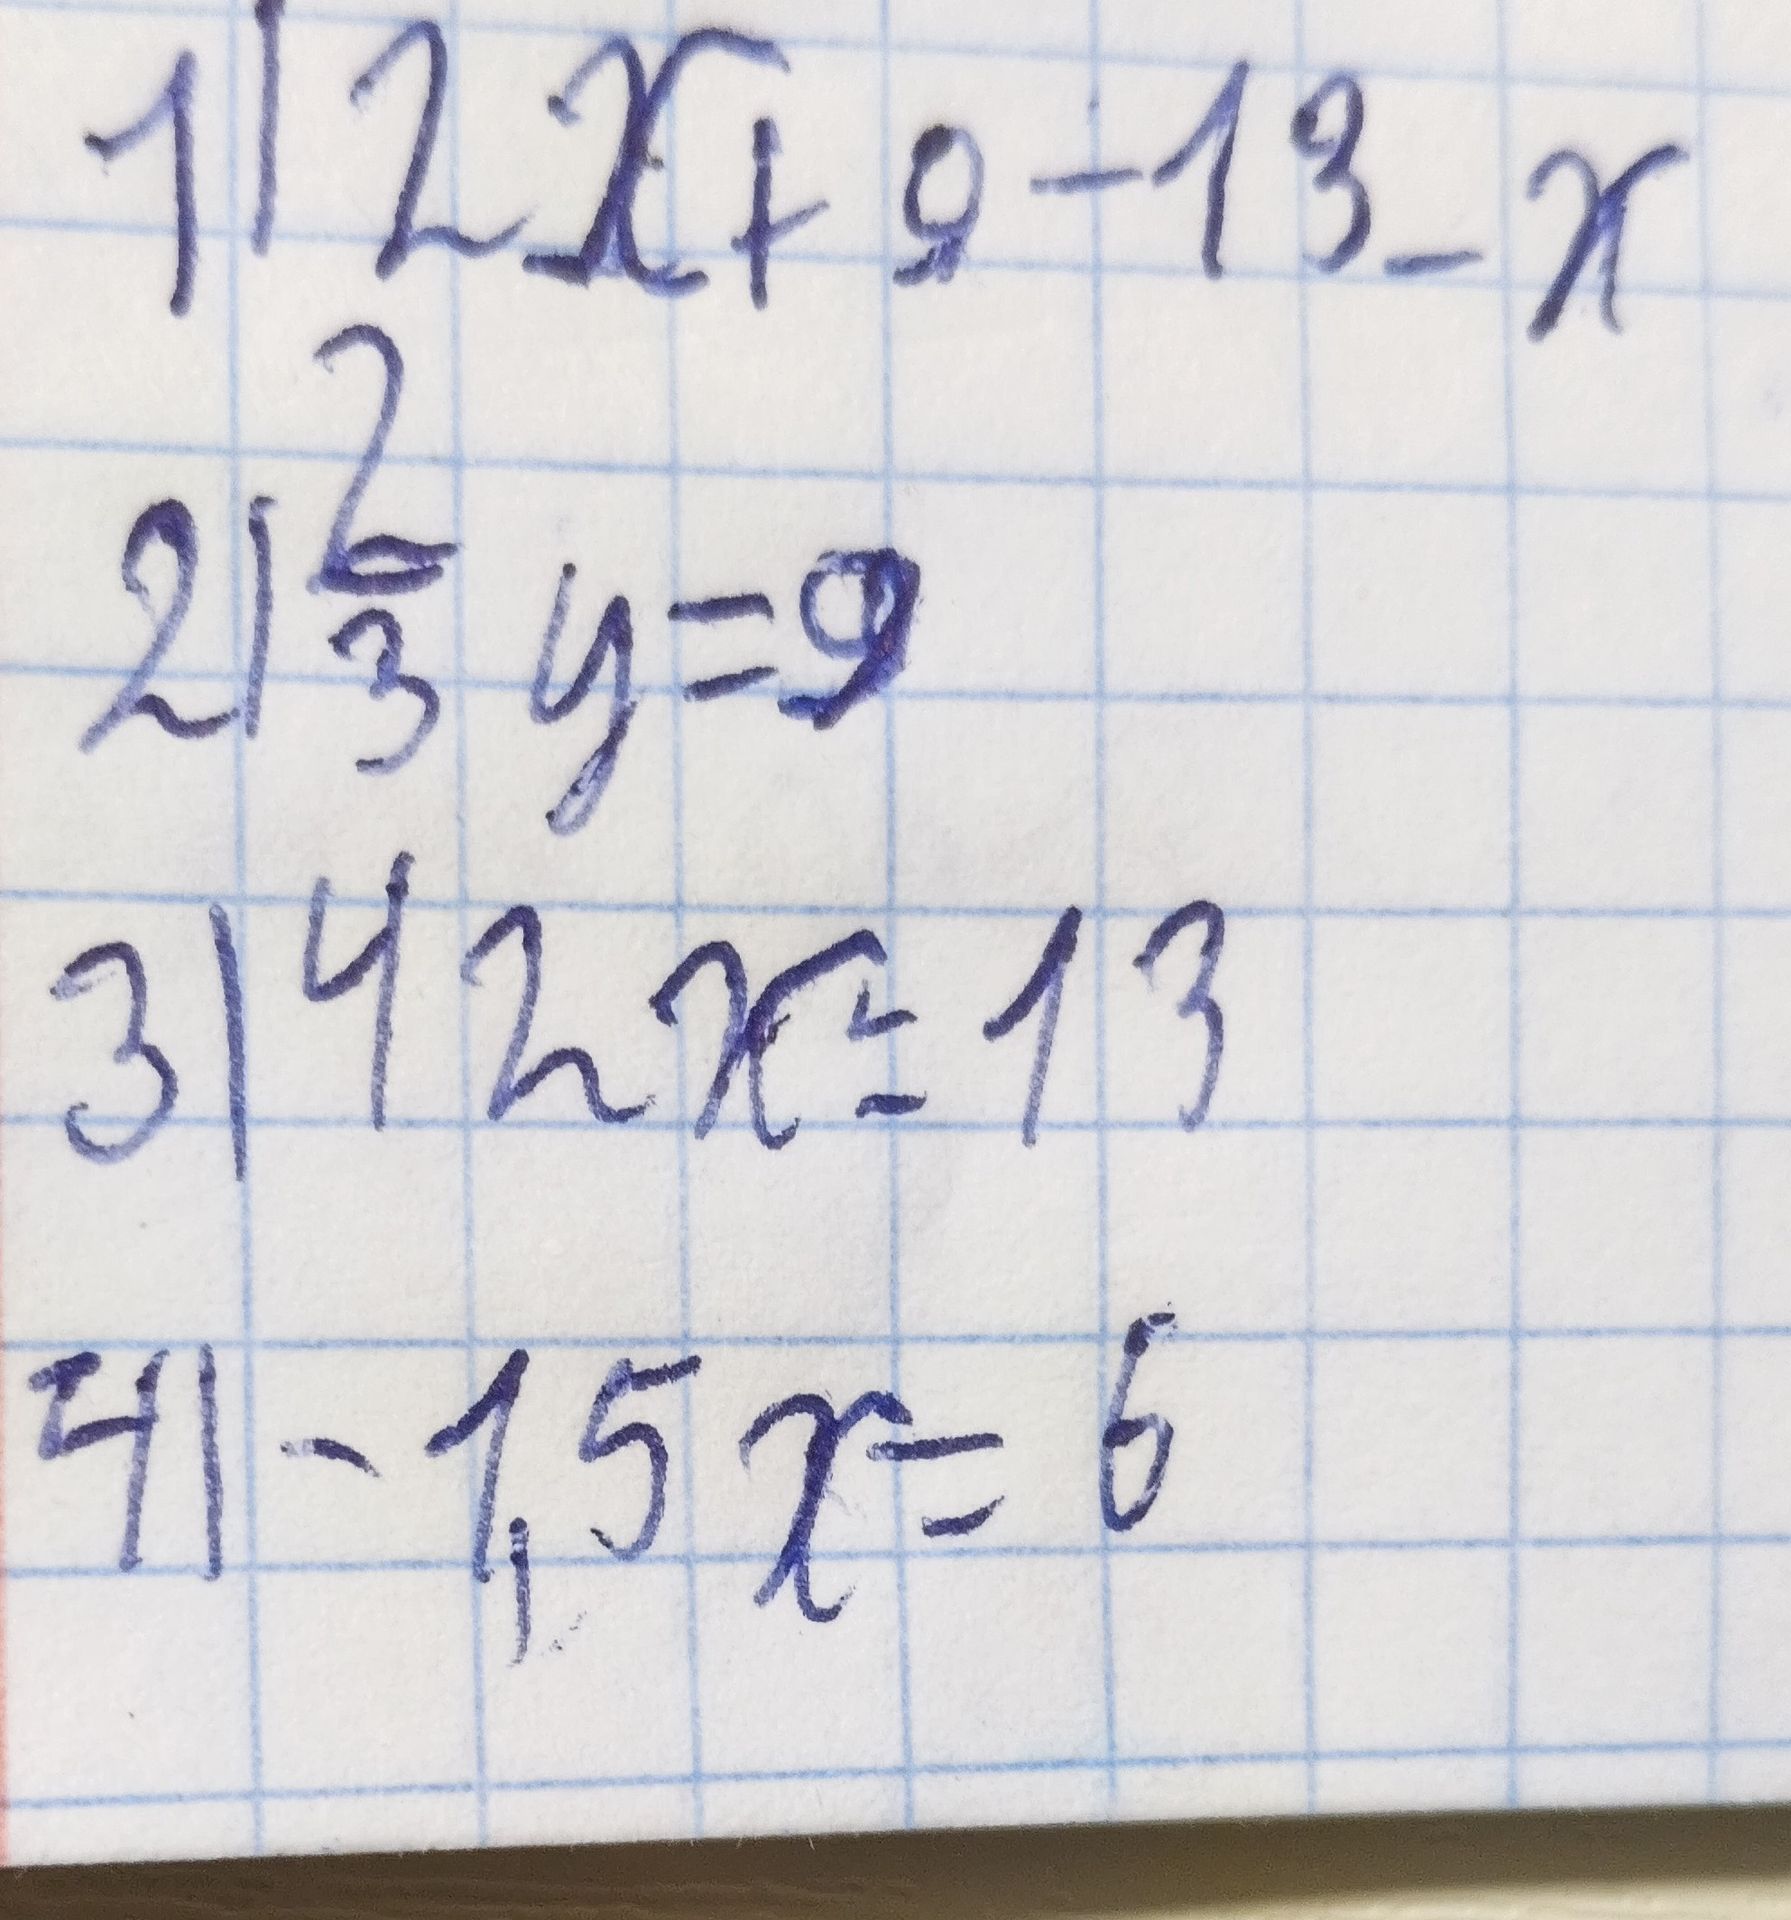 1) 2x + 9 - 13 - x
2) 2/3 y = 9
3) 42x = 13
4) - 1,5x = 6